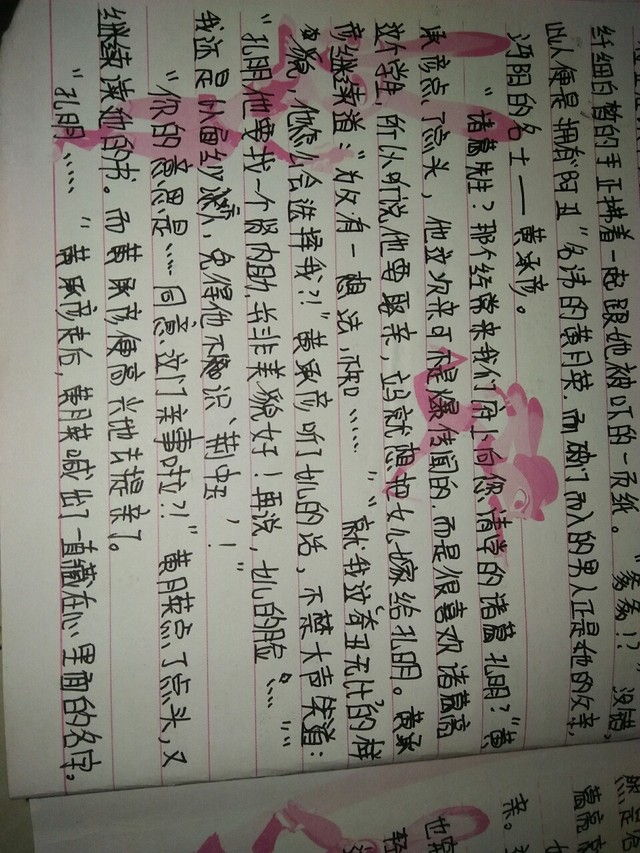 纤细白皙的手正拂着一起跟她被吓的一页纸。“爹爹！？”没错，
此人便是拥有“阿丑”名讳的黄月英.而破门而入的男人正是她的父亲，
沔阳的名士——黄承彦。
“诸葛？那个经常来我们府上向您请学的诸葛孔明？”黄
承彦点了点头，他这次来可不是爆传闻的.而是很喜欢诸葛亮
这个学生，所以听说他要娶亲，立马就想把女儿嫁给孔明。黄承
彦继续道：“为父有一想法，不知……”“就我这奇丑无比的样
貌，他怎么会选择我？！”黄承彦听了女儿的话，不禁大声笑道：
“孔明他要找一个贤内助，并非美貌好！再说，女儿的脸……”“
我还是以面纱示人，免得他不识‘荆中丑’！”
“你的意思是……同意这门亲事啦？！”黄月英点了点头，又
继续读她的书。而黄承彦便高兴地去提亲了。
“孔明……”黄承彦走后，黄月英喊出了一直藏在心里面的名字。